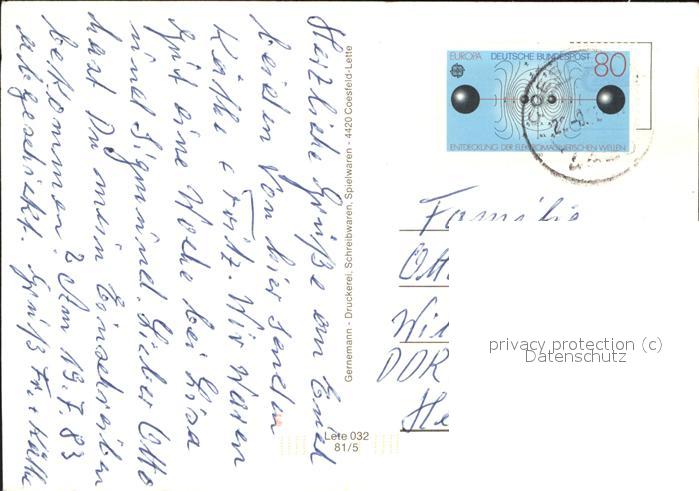 Herzliche Grüße an Euch
beiden von hier senden
Käthe & Fritz. Wir waren
hier eine Woche bei Lisa
und Sigmund. Lieber Otto
hast Du mein Einschreiben
bekommen? Am 19.7.83
abgeschickt. Gruß Fr. + Käthe
Gernemann - Druckerei, Schreibwaren, Spielwaren - 4420 Coesfeld-Lette
Lete 032
81/5
EUROPA DEUTSCHE BUNDESPOST 80
ENTDECKUNG DER ELEKTROMAGNETISCHEN WELLEN
Familie
Ott
Wi
DDR
He
privacy protection (c)
Datenschutz